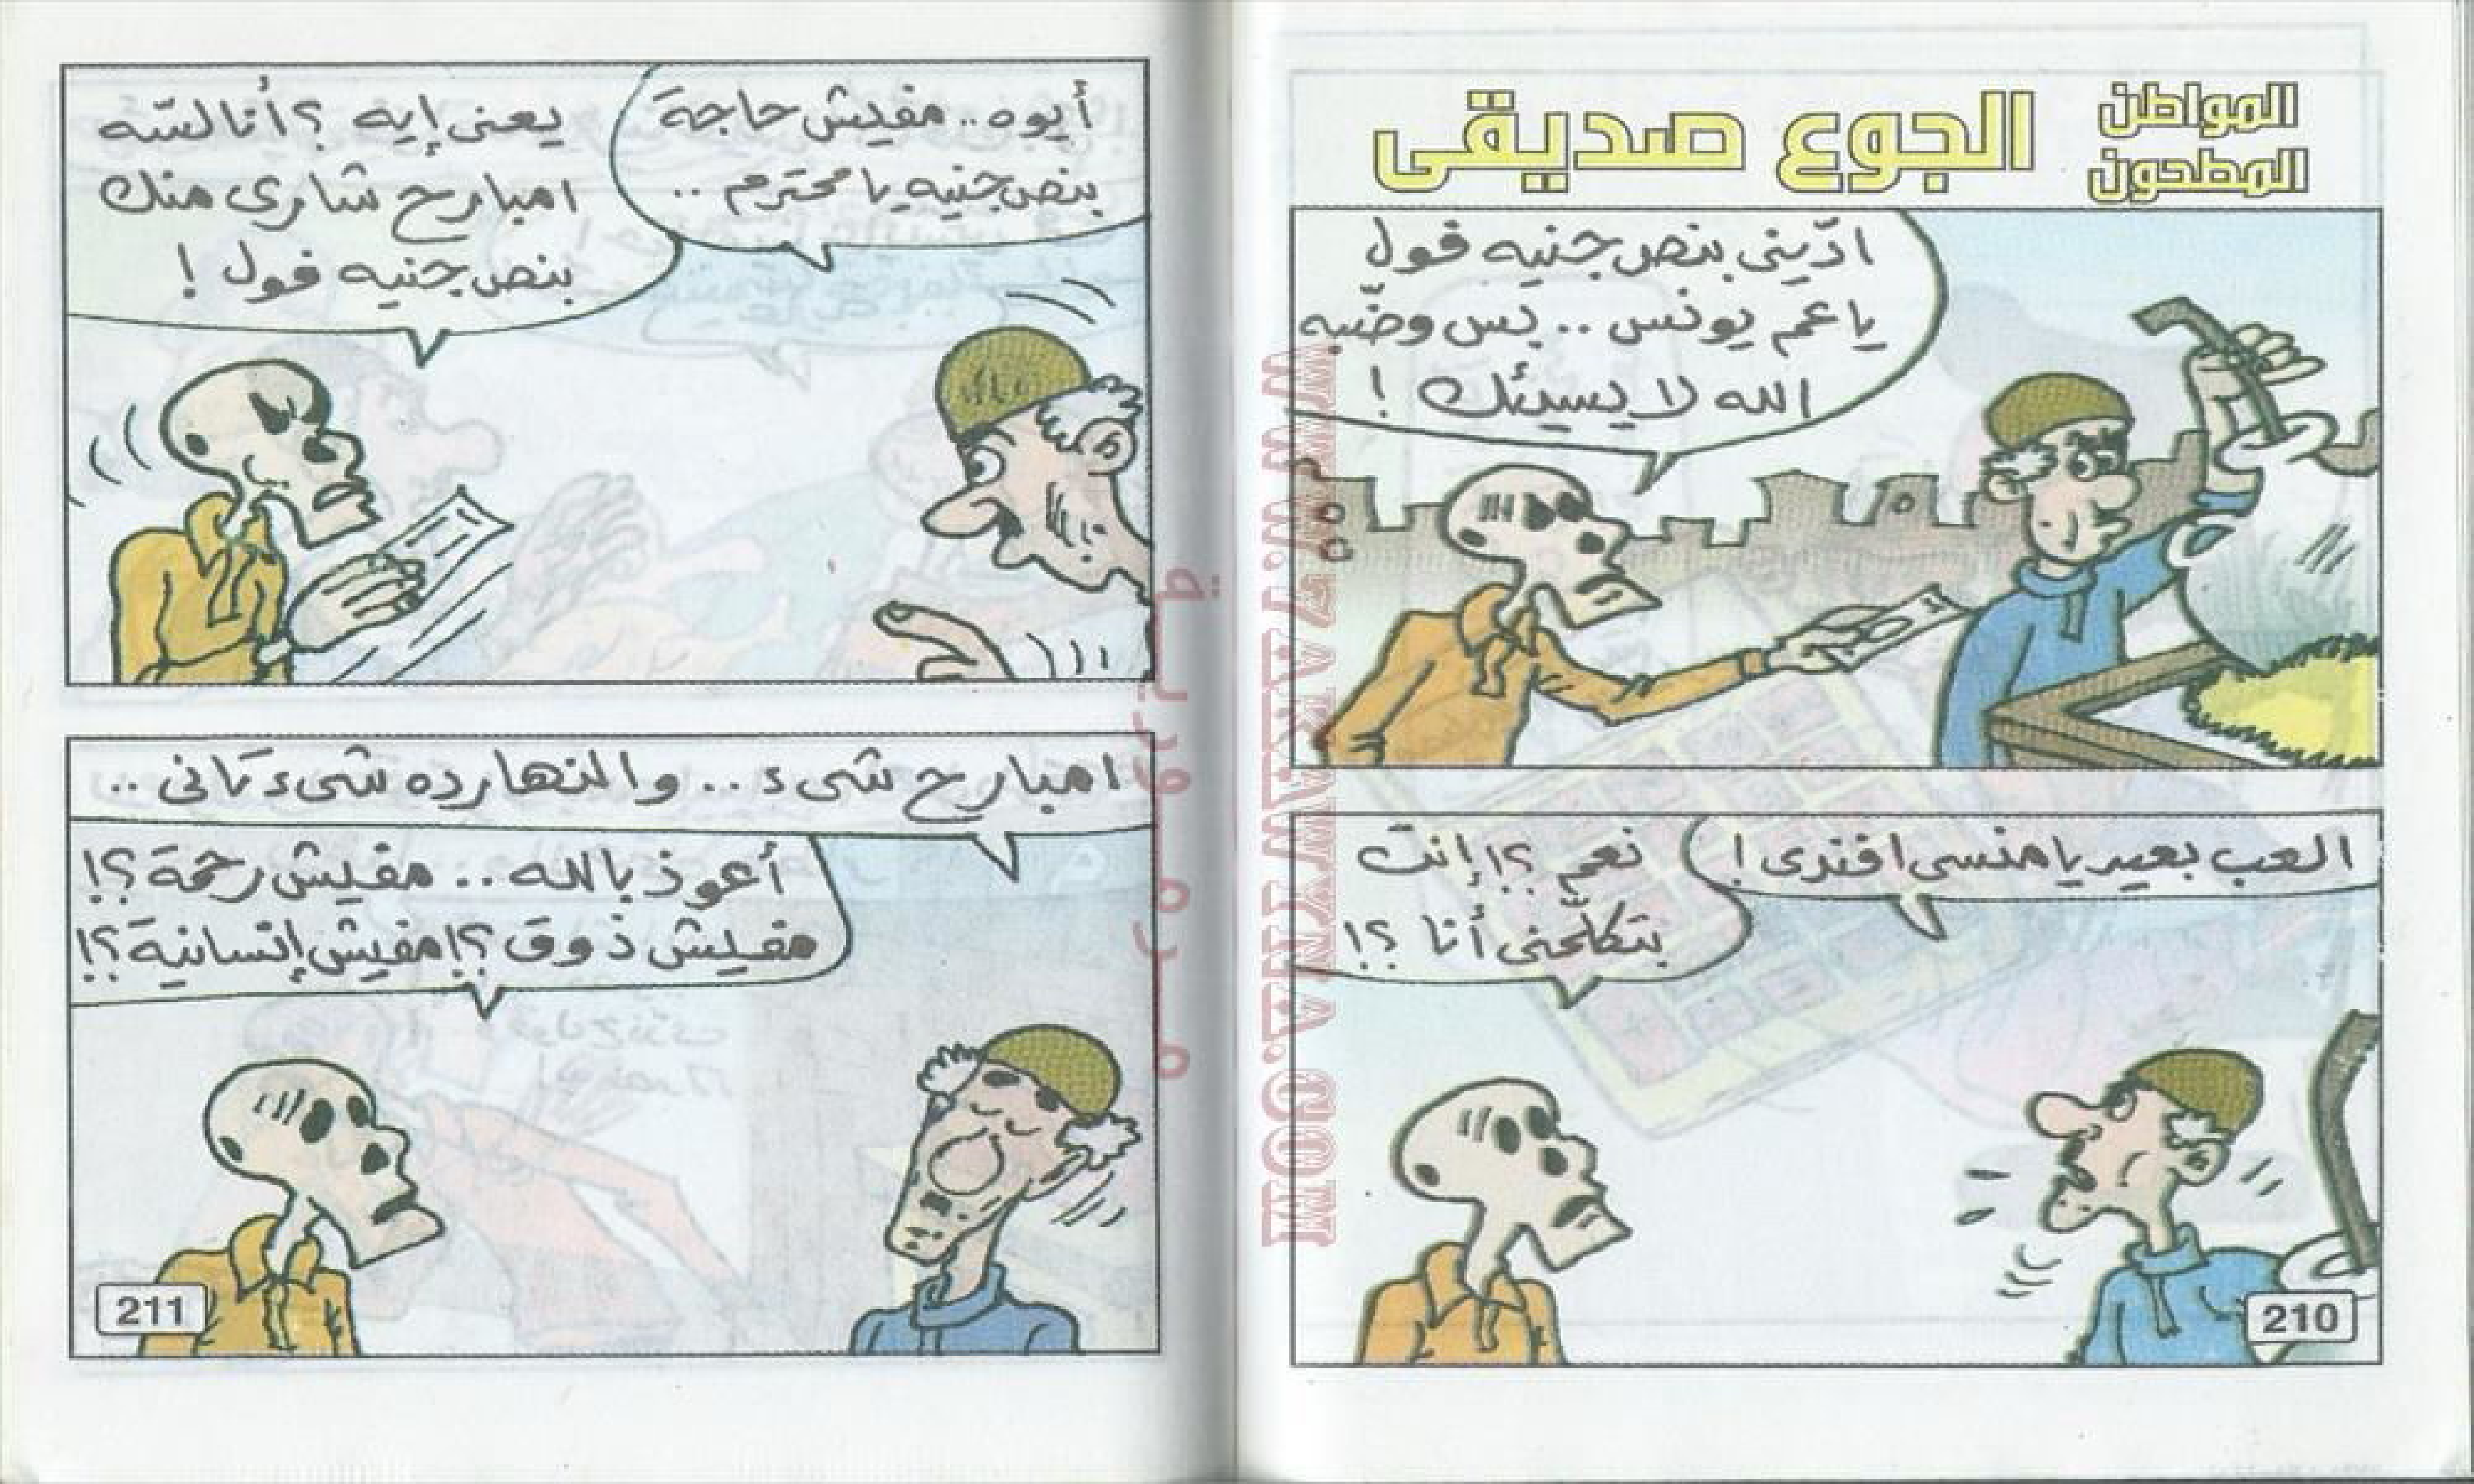 المواطن
المطحون
الجوع صديقى
ادّينى بنص جنيه فول
يا عم يونس .. بس وضّبه
الله لا يسيئك !
العب بعيد يا منسى افندى !
نعم ؟! إنت
بتكلّمنى أنا ؟!
210
أيوه .. مفيش حاجة
بنص جنيه يا محترم ..
يعنى إيه ؟ أنا لسّه
امبارح شارى منك
بنص جنيه فول !
امبارح شىء .. والنهارده شىء تانى ..
أعوذ بالله .. مفيش رحمة ؟!
مفيش ذوق ؟! مفيش إنسانية ؟!
211